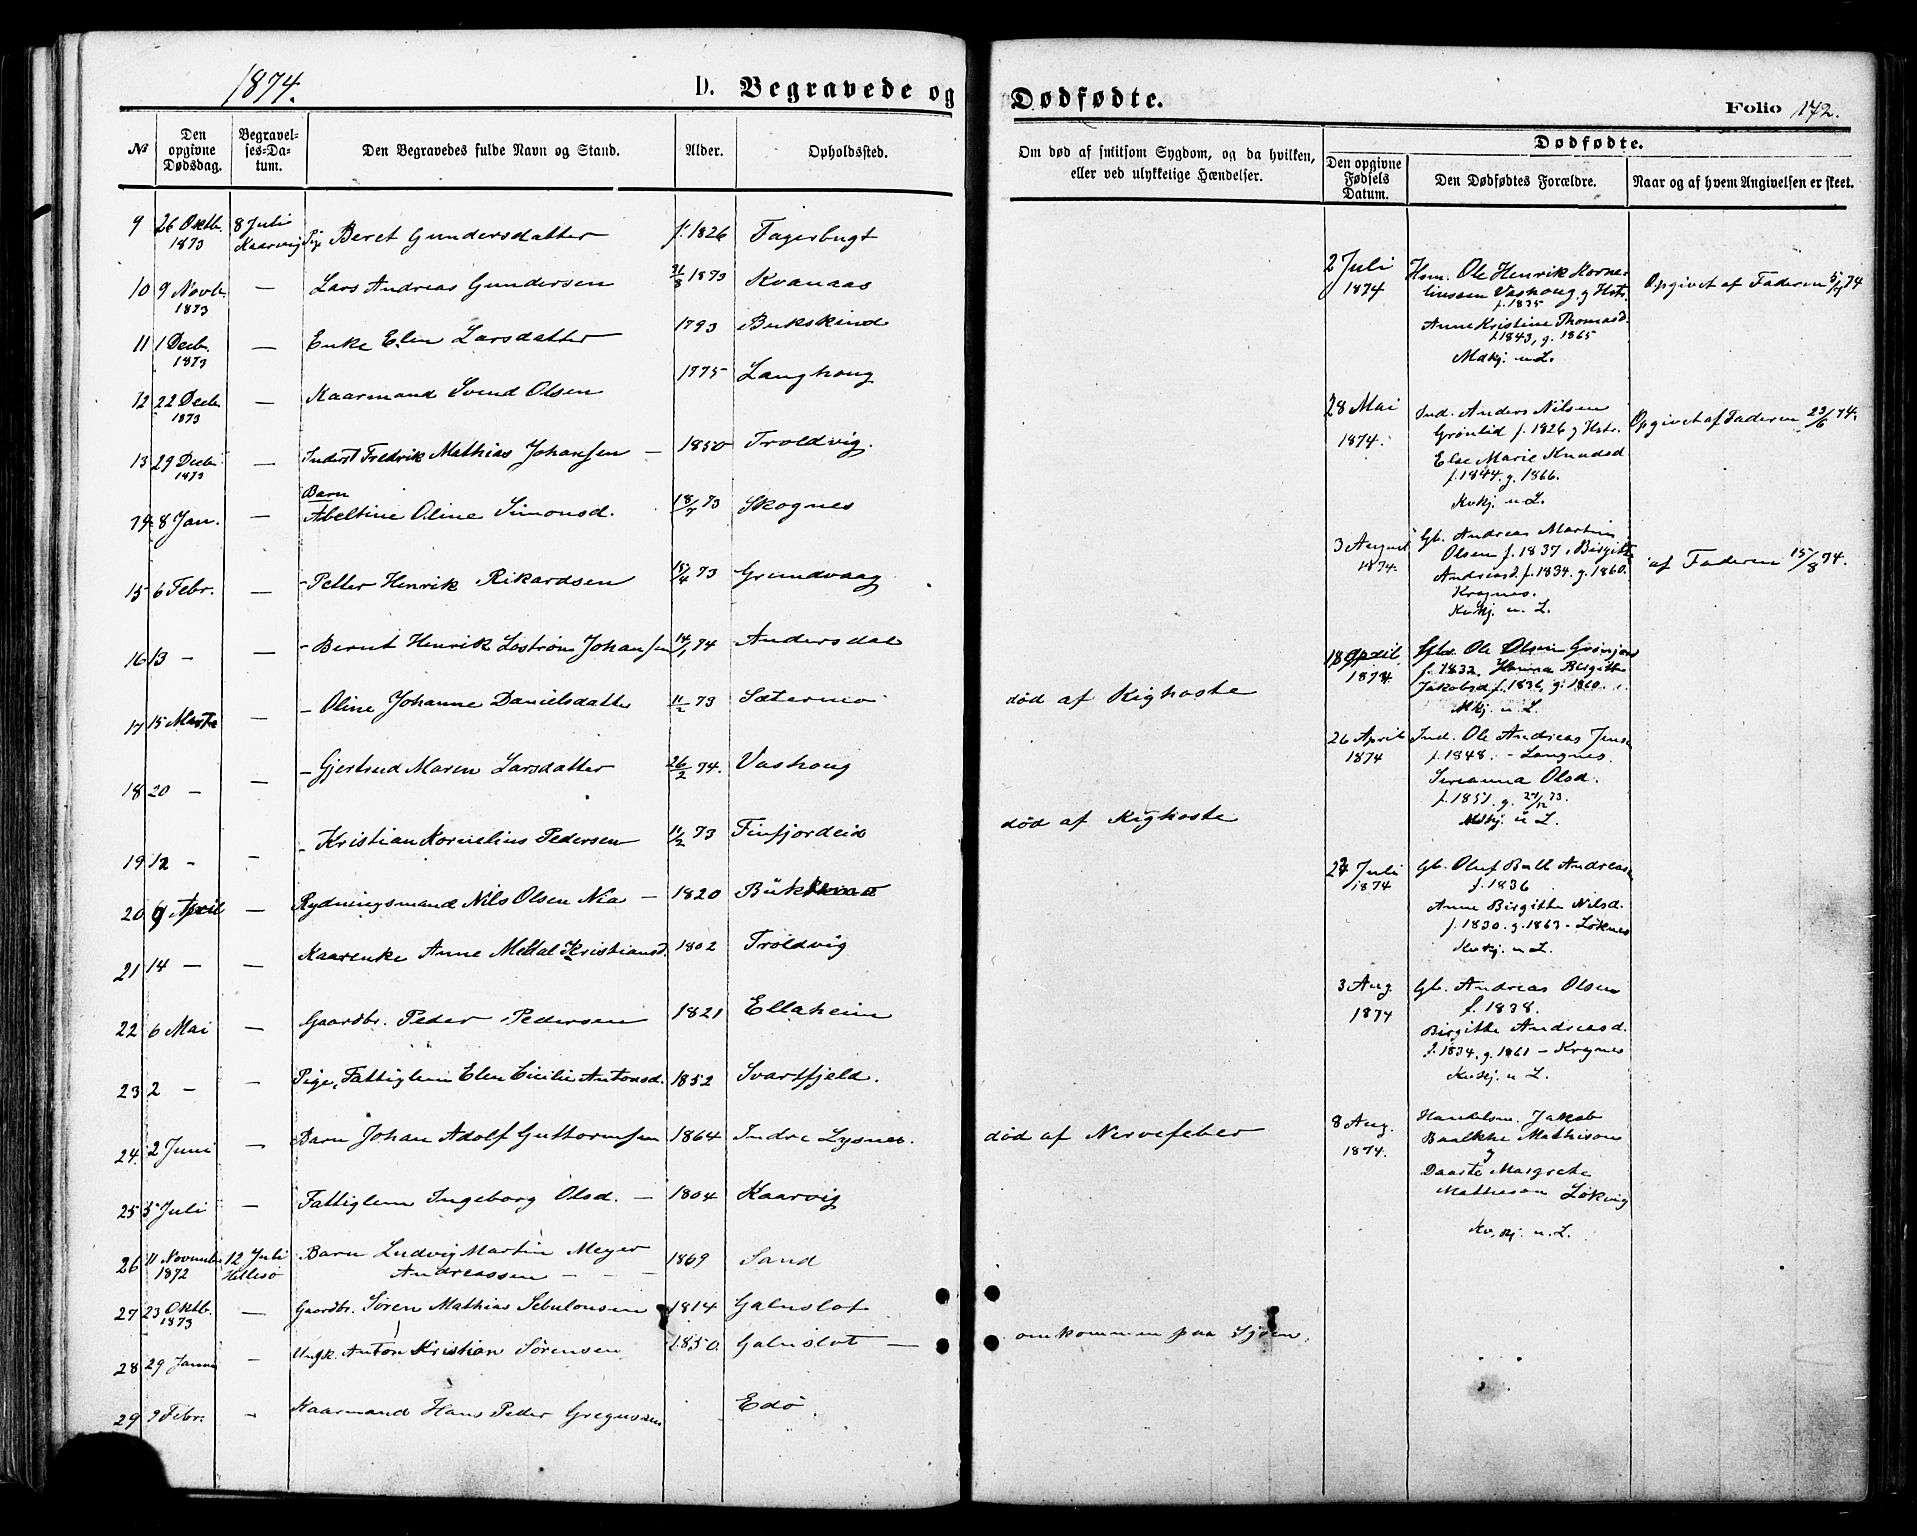 1874.
D. Begravede og Dødfødte.
Folio 172.
No
Den opgivne Dødsdag.
Begravelses-Datum.
Den Begravedes fulde Navn og Stand.
Alder.
Opholdssted.
Om død af smitsom Sygdom, og da hvilken,
eller ved ulykkelige Hændelser.
Dødfødte.
Den opgivne Fødsels Datum.
Den Dødfødtes Forældre.
Naar og af hvem Angivelsen er skeet.
9 26 Oktb. 1873 8 Juli Kaarvig Pige Beret Gundersdatter f. 1826 Fagerbugt
10 9 Novb. 1873 — Lars Andreas Gundersen 31/8 1873 Kvanaas
11 1 Decb. 1873 — Enke Elen Larsdatter 1793 Bukskind
12 22 Decb. 1873 — Kaarmand Svend Olsen 1775 Langhoug
13 29 Decb. 1873 — Inderst Fredrik Mathias Johansen — 1850 Troldvig.
14 8 Jan. — Barn Abeltine Oline Simonsd. 18/7 73 Skognes
15 6 Febr. — - Petter Henrik Rikardsen 15/4 73 Grundvaag
16 13 - — - Bernt Henrik Johansen 14/1 74 Andersdal
17 15 Marts — - Oline Johanne Danielsdatter 11/2 73 Sætermo død af Kighoste
18 20 - — - Gjertrud Maren Larsdatter 26/2 74. Vashoug
19 12 - — - Kristian Kornelius Pedersen 11/2 73 Finfjordeid død af Kighoste
20 9 April — Rydningsmand Nils Olsen Nia — 1820
21 14 — — Kaarenke Anne Kristiansd. 1802 Troldvig
22 6 Mai — Gaardbr. Peder Pedersen 1821 Ellaheim
23 2 - — Pige, Fattiglem Elen Cicilie Antonsd. 1852 Svartfjeld.
24. 2 Juni — Barn Johan Adolf Guttormsen 1864 Indre Lysnes. død af Nervefeber
25 5 Juli — Fattiglem Ingeborg Olsd. — 1804 Kaarvig
26 11 November 1872 12 Juli Hillesø Barn Ludvig Martin Meyer
Andreassen — — — 1869 Sand
27 23 Oktb. 1873 — Gaardbr. Søren Mathias Sebulonsen 1814 Galnslot
28 29 Januar — Ungk. Anton Kristian Sørensen f. 1850. Galnslot — omkommen paa Sjøen.
29 9 Febr. - Kaarmand Hans Peder Gregussen Edø.
2 Juli 1874 Hsm. Ole Henrik Korne-
liussen Vashoug. g Hstr.
f. 1835
Anne Kristine Thomasd.
f. 1843, g. 1865
Mdkj. u L.
Opgivet af Faderen 5/7 74
28 Mai 1874. Ind. Anders Nilsen
Grønlid f. 1826 g Hstr.
Else Marie Knudsd
f. 1844. g. 1866.
Kvkj. u L.
Opgivet af Faderen 23/6 74.
3 August 1874. Gb. Andreas Martin
Olsen f. 1837. Birgitte
Andreasd. f. 1834. g. 1860.
Kragnes.
Kvkj. u. L.
af Faderen 15/8 74.
18 April 1874 Ole Olsen
f. 1832, Birgitte
Jakobsd. f. 1836, g. 1860.
Mkj. u L.
26 April 1874 Ind. Ole Andreas Jensen
f. 1848. - Langnes.
Sirianna Olsd.
f. 1851. g. 27/12 73.
Mdkj. u L.
Juli 1874 Gb. Oluf Andreas
f. 1836
Anne Birgitte Nilsd.
f. 1830. g. 1863 - Løknes
Kvkj. u L.
3 Aug 1874 Gb. Andreas Olsen
f. 1838.
Birgitte Andreasd.
f. 1834. g. 1861 — Kragnes
Kvkj. u L.
8 Aug. 1874. Handelsm. Jakob
Mathison
g
Daarte Margrete
Mathieson Løkvig
Kv. kj. u. L.